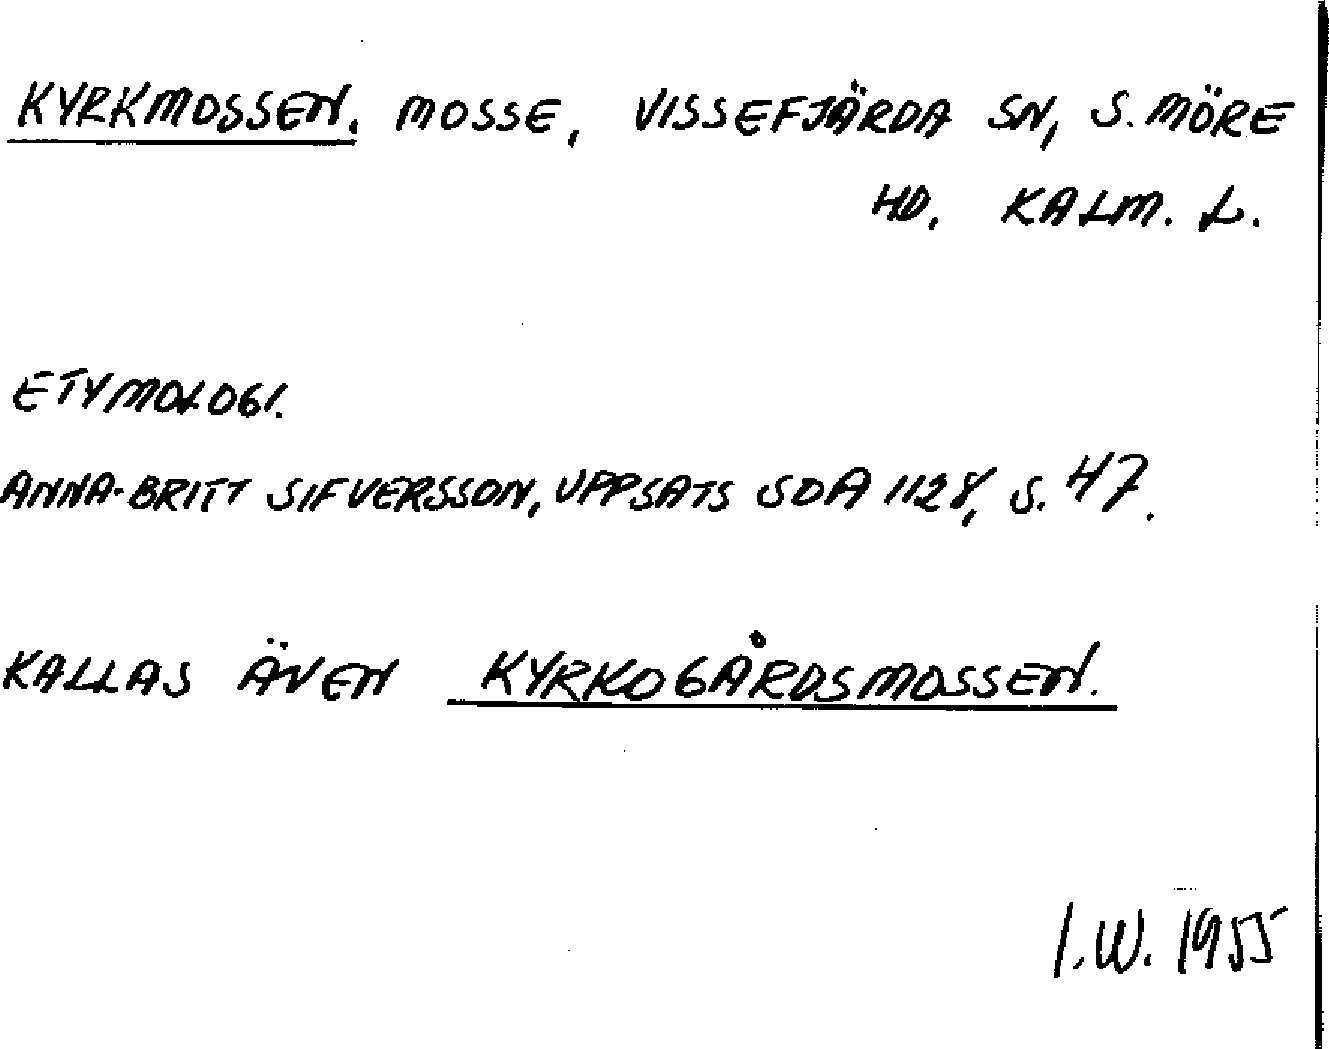 KYRKMOSSEN. MOSSE, VISSEFJÄRDA SN, S. MÖRE
HD. KALM. L.
ETYMOLOGI.
ANNA-BRITT SIFVERSSON, UPPSATS SOA 1128, S. 47.
KALLAS ÄVEN KYRKOGÅRDSMOSSEN.
I.W. 1955